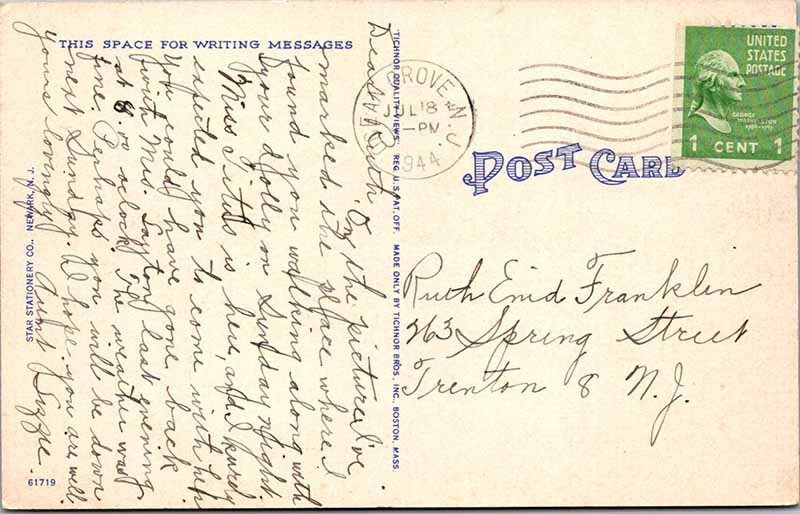 THIS SPACE FOR WRITING MESSAGES
Dear Ruth
On the picture I've
marked the place where I
found you walking along with
your dolly on Sunday night.
Miss Titus is here, and I
expected you to come with her
You could have gone back
with Mrs. last evening
at 8.00 oclock The weather was
fine. Perhaps you will be down
next Sunday. I hope you are well.
Yours lovingly Aunt
STAR STATIONERY CO., NEWARK, N. J.
61719
"TICHNOR QUALITY VIEWS," REG. U. S. PAT. OFF. MADE ONLY BY TICHNOR BROS., INC., BOSTON, MASS.
OCEAN GROVE N.J.
JUL 18
4 -PM
1944
UNITED
STATES
POSTAGE
GEORGE
WASHINGTON
1 CENT 1
POST CARD
Ruth Enid Franklin
263 Spring Street
Trenton 8 N.J.